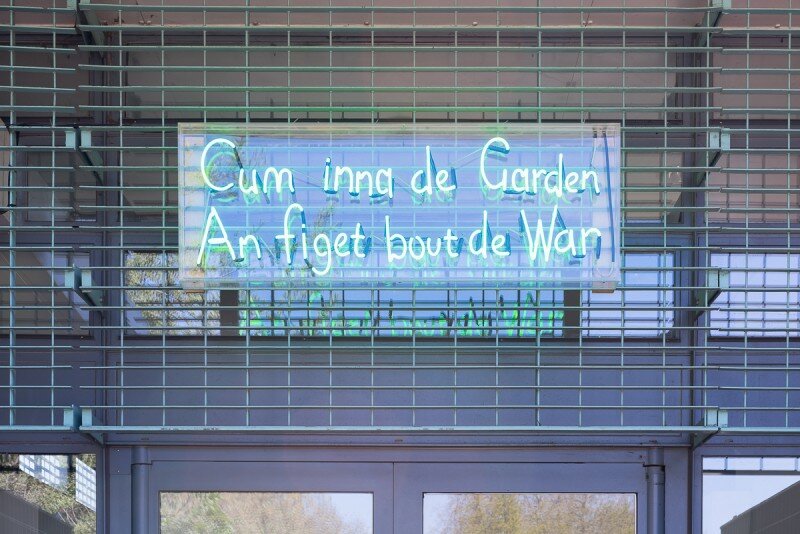 Cum inna de Garden
An figet bout de War